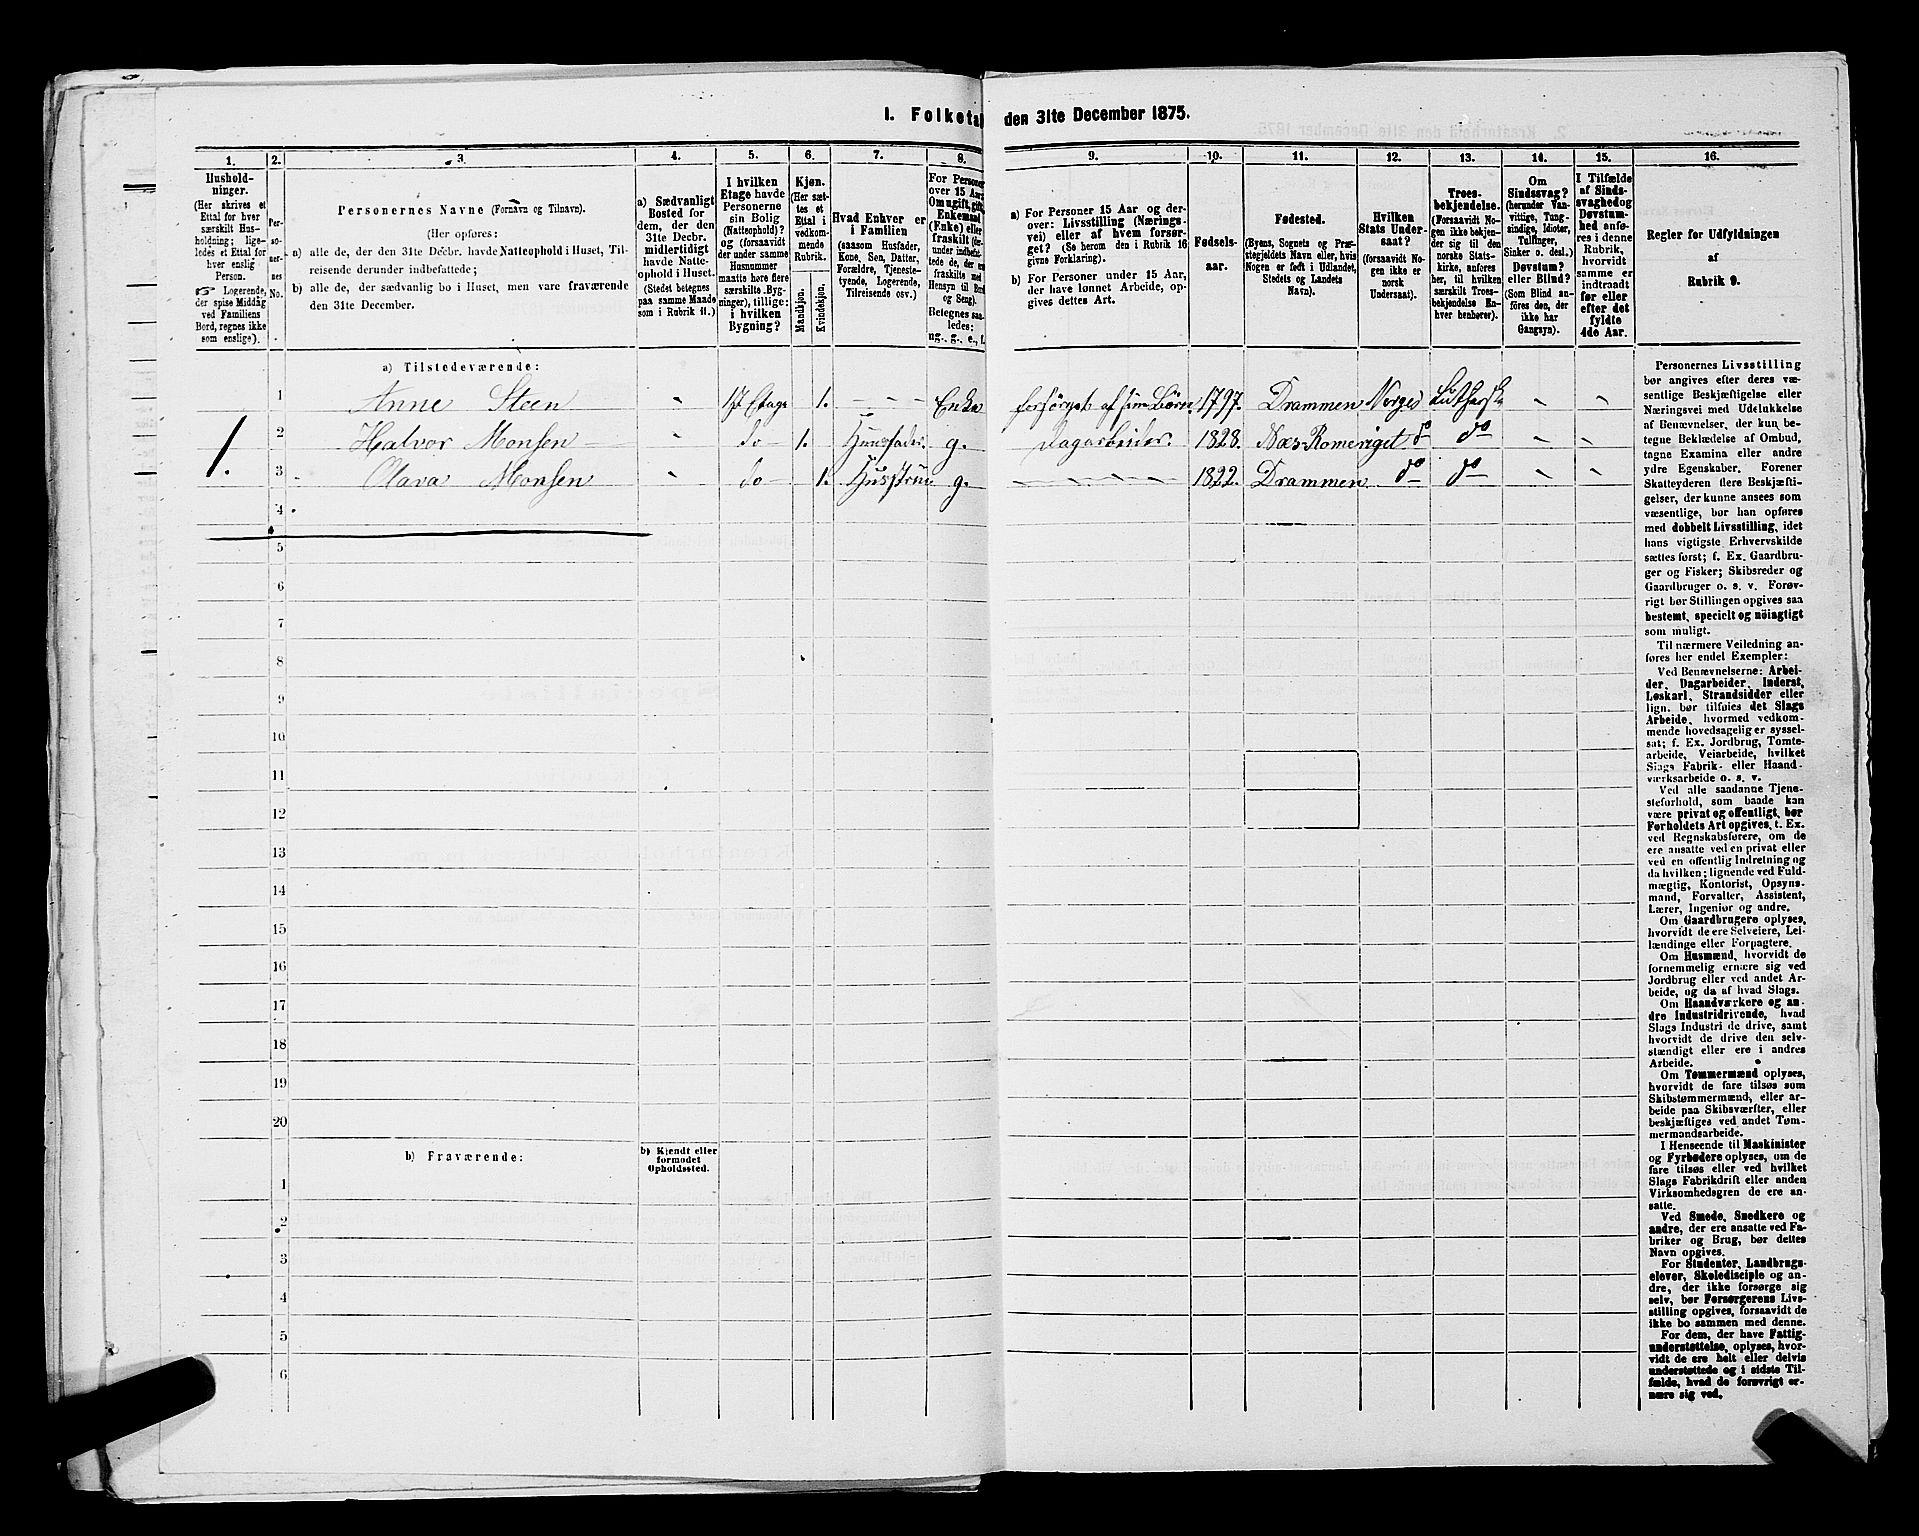 1. Folketal den 31te December 1875.
1. 2. 3. 4. 5. 6. 7. 8. 9. 10. 11. 12. 13. 14. 15. 16.
Hushold-
ninger.
(Her skrives et
Ettal for hver
særskilt Hus-
holdning; lige-
ledes et Ettal for
hver enslig
Person.
☞ Logerende,
der spise Middag
ved Familiens
Bord, regnes ikke
som enslige).
Per-
so-
ner-
nes
No.
Personernes Navne (Fornavn og Tilnavn).
(Her opføres:
a) alle de, der den 31te Decbr. havde Natteophold i Huset, Til-
reisende derunder indbefattede;
b) alle de, der sædvanlig bo i Huset, men vare fraværende
den 31te December.
a) Sædvanligt
Bosted for
dem, der den
31te Decbr.
midlertidigt
havde Natte-
ophold i Huset.
(Stedet betegnes
paa samme Maade
som i Rubrik 11.)
I hvilken
Etage havde
Personerne
sin Bolig
(Natteophold)?
og (forsaavidt
der under samme
Husnummer
maatte høre flere
særskilte Byg-
ninger), tillige:
i hvilken
Bygning?
Kjøn.
(Her sæt-
tes et
Ettal i
vedkom-
mende
Rubrik.
Mandkjøn.
Kvindekjøn.
Hvad Enhver er
i Familien
(saasom Husfader,
Kone, Søn, Datter,
Forældre, Tjeneste-
tyende, Logerende,
Tilreisende osv.)
For Personer
over 15 Aar:
Om ugift, gift,
Enkemand
(Enke) eller
fraskilt
Hensyn til Bord
og Seng).
Betegnes saa-
ledes:
ug., g., e., f.
a) For Personer 15 Aar og der-
over: Livsstilling (Nærings-
vei) eller af hvem forsør-
get? (Se herom den i Rubrik 16
givne Forklaring).
b) For Personer under 15 Aar,
der have lønnet Arbeide, op-
gives dettes Art.
Fødsels-
aar.
Fødested.
(Byens, Sognets og Præ-
stegjeldets Navn eller, hvis
Nogen er født i Udlandet,
Stedets og Landets
Navn).
Hvilken
Stats Under-
saat?
(forsaavidt No-
gen ikke er
norsk
Undersaat).
Troes-
bekjendelse.
(Forsaavidt No-
gen ikke bekjen-
der sig til den
norske Stats-
kirke, anføres
her, til hvilken
særskilt Troes-
bekjendelse En-
hver henhører).
Om
Sindssvag?
(herunder Van-
vittige, Tung-
sindige, Idioter,
Tullinger,
Sinker o. desl.)
Døvstum?
eller Blind?
(Som Blind an-
føres den, der
ikke har
Gangsyn).
I Tilfælde
af Sinds-
svaghed og
Døvstum-
hed anfø-
res i denne
Rubrik,
hvorvidt
samme er
indtraadt
før eller
efter det
fyldte
4de Aar.
Regler for Udfyldningen
af
Rubrik 9.
a) Tilstedeværende:
1 Anne Steen 1st Etage 1. Enke forsørget af sine Børn 1797. Drammen Norges Luthersk
1. 2 Halvor Monsen do 1. Huusfader. g. Dagarbeider. 1828. Næs-Romeriget do do
3 Olava Monsen do 1. Husstru g. 1822. Drammen do do
4
5
6
7
8
9
10
11
12
13
14
15
16
17
18
19
20
b) Fraværende:
b) Kjendt eller
formodet
Opholdssted.
1
2
3
4
5
6
Personernes Livsstilling
bør angives efter deres væ-
sentlige Beskjæftigelse eller
Næringsvei med Udelukkelse
af Benævnelser, der kun be-
tegne Beklædelse af Ombud,
tagne Examina eller andre
ydre Egenskaber. Forener
Skatteyderen flere Beskjæfti-
gelser, der kunne ansees som
væsentlige, bør han opføres
med dobbelt Livsstilling, idet
hans vigtigste Erhvervskilde
sættes først; f. Ex. Gaardbru-
ger og Fisker; Skibsreder og
Gaardbruger o. s. v. Forøv-
rigt bør Stillingen opgives saa
bestemt, specielt og nöiagtigt
som muligt.
Til nærmere Veiledning an-
føres her endel Exempler:
Ved Benævnelserne: Arbei-
der, Dagarbeider, Inderst,
Løskarl, Strandsidder eller
lign. bør tilføies det Slags
Arbeide, hvormed vedkom-
mende hovedsagelig er syssel-
sat; f. Ex. Jordbrug, Tomte-
arbeide, Veiarbeide, hvilket
Slags Fabrik- eller Haand-
værksarbeide o. s. v.
Ved alle saadanne Tjene-
steforhold, som baade kan
være privat og offentligt, bør
Forholdets Art opgives, t. Ex.
ved Regnskabsførere, om de
ere ansatte ved en privat eller
ved en offentlig Indretning og
da hvilken; lignende ved Fuld-
mægtig, Kontorist, Opsyns-
mand, Forvalter, Assistent,
Lærer, Ingeniør og andre.
Om Gaardbrugere oplyses,
hvorvidt de ere Selveiere, Lei-
lændinge eller Forpagtere.
Om Husmænd, hvorvidt de
fornemmelig ernære sig ved
Jordbrug eller ved andet Ar-
beide, og da af hvad Slags.
Om Haandværkere og an-
dre Industridrivende, hvad
Slags Industri de drive, samt
hvorvidt de drive den selv-
stændigt eller ere i andres
Arbeide.
Om Tømmermænd oplyses,
hvorvidt de fare tilsøs som
Skibstømmermænd, eller ar-
beide paa Skibsværfter, eller
beskjæftiges ved andet Tøm-
mermandsarbeide.
I Henseende til Maskinister
og Fyrbødere oplyses, om de
fare tilsøs eller ved hvilket
Slags Fabrikdrift eller anden
Virksomhedsgren de ere an-
satte.
Ved Smede, Snedkere og
andre, der ere ansatte ved Fa-
briker og Brug, bør dettes
Navn opgives.
For Studenter, Landbrugs-
elever, Skoledisciple og an-
dre, der ikke forsørge sig
selv, bør Forsørgerens Livs-
stilling opgives, forsaavidt de
ikke bo sammen med denne.
For dem, der have Fattig-
understøttelse, oplyses, hvor-
vidt de ere helt eller delvis
understøttede og i sidste Til-
fælde, hvad de forøvrigt er-
nære sig ved.